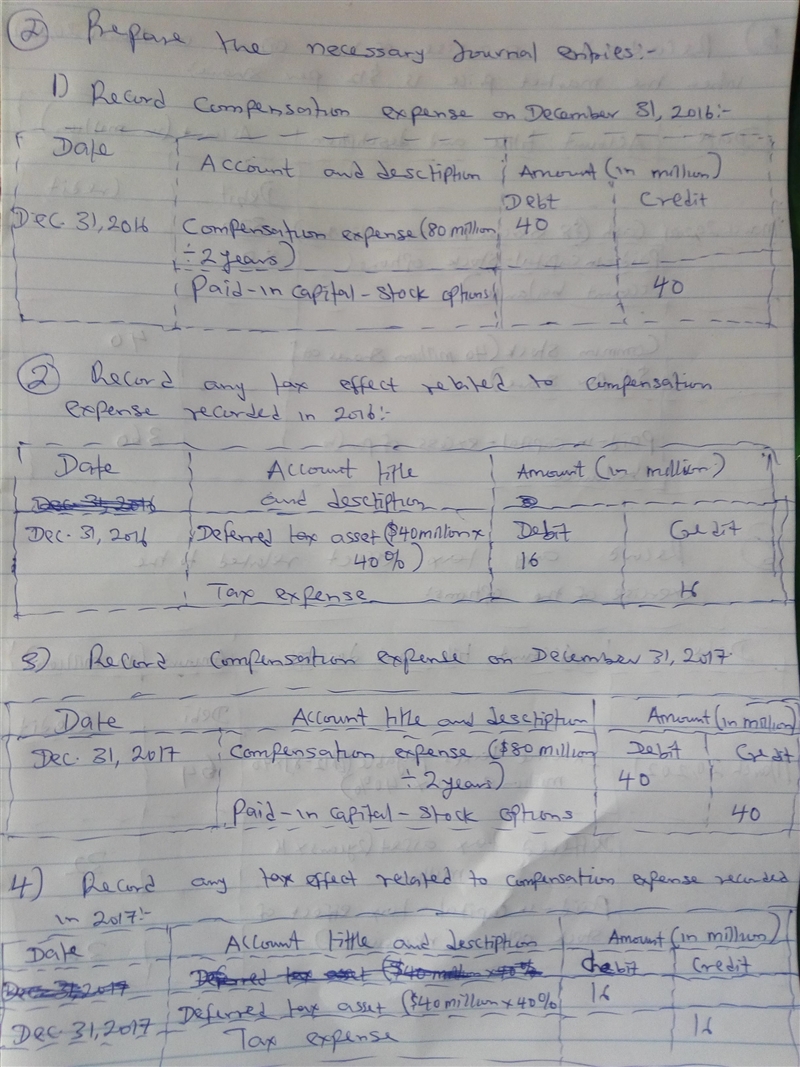 2 Prepare the necessary Journal entries:-
1) Record Compensation expense on December 31, 2016:-
Date Account and desctiption Amount (in million)
Debt Credit
Dec. 31, 2016 Compensation expense (80 million 40
÷ 2 years)
Paid-in capital-stock options 40
2 Record any tax effect related to compensation
expense recorded in 2016:-
Date Account title Amount (in million)
Dec. 31, 2016 and desctiption
Dec. 31, 2016 Deferred tax asset ($40 million x Debit Credit
40%) 16
Tax expense 16
3) Record compensation expense on December 31, 2017
Date Account title and desctiption Amount (in million)
Dec. 31, 2017 Compensation expense ($80 million Debit Credit
÷ 2 years) 40
Paid-in capital-stock options 40
4) Record any tax effect related to compensation expense recorded
in 2017:-
Date Account tittle and desctiption Amount (in million)
Dec. 31, 2017 Deferred tax asset ($40 million x 40% debit Credit
Deferred tax asset ($40 million x 40% 16
Dec. 31, 2017 Tax expense 16